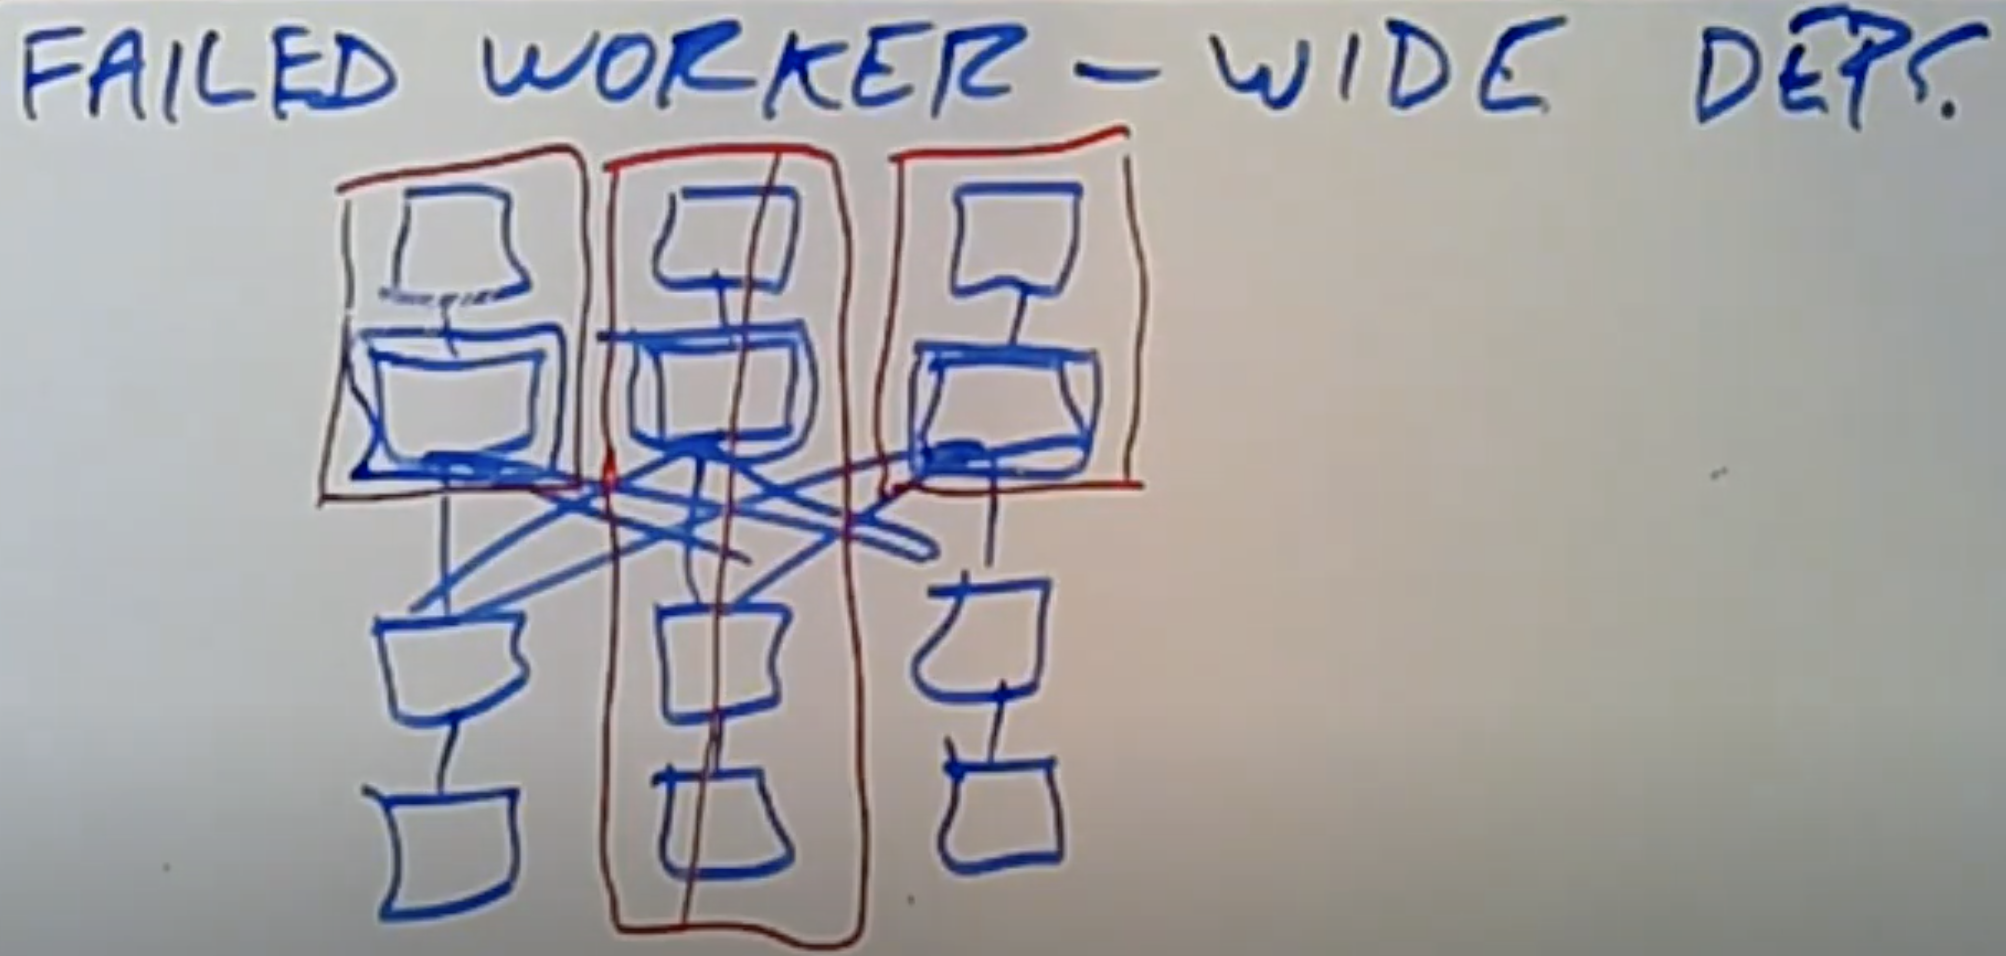 FAILED WORKER - WIDE DEPS.